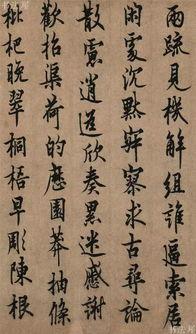 兩疏見機解組誰逼索居
閑處沉默寂寥求古尋論
散慮逍遥欣奏累遣感謝
歡招渠荷的歷園莽抽條
枇杷晚翠桐梧早彫陳根